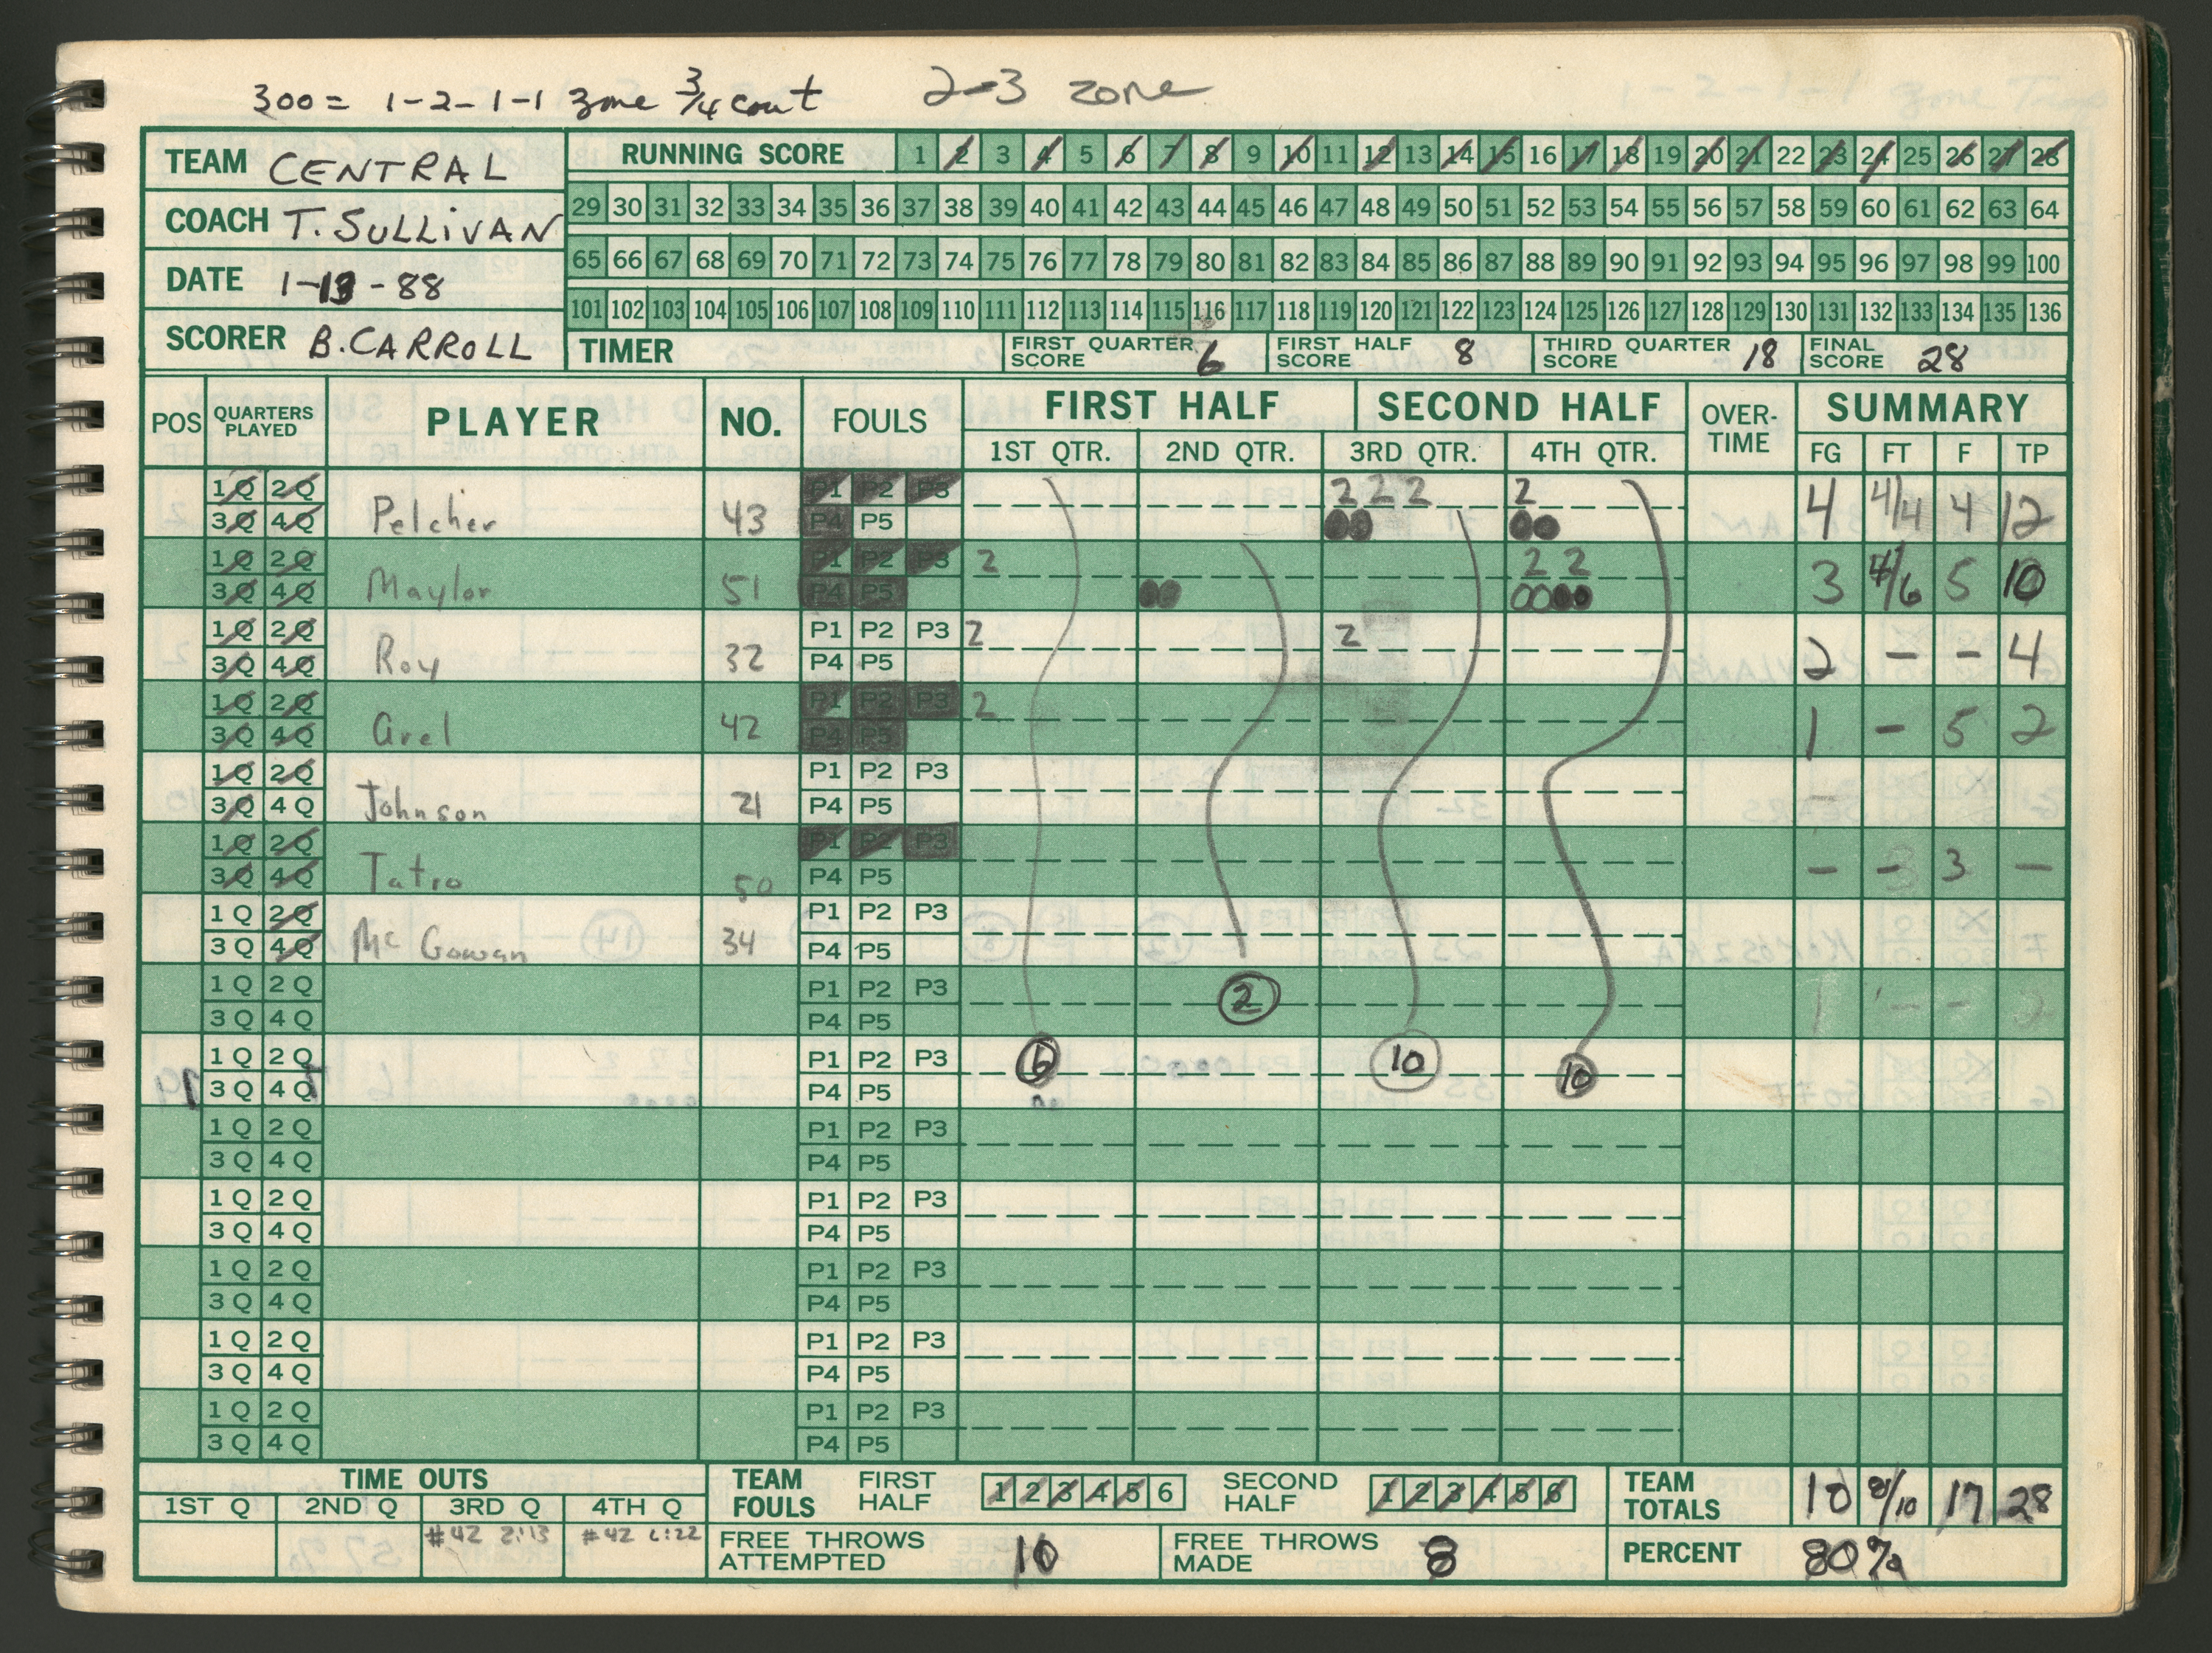 300 = 1-2-1-1 zone 3/4 court 2-3 zone
TEAM CENTRAL
COACH T. SULLiVAN
DATE 1-13-88
SCORER B. CARROLL
RUNNING SCORE 1 2 3 4 5 6 7 8 9 10 11 12 13 14 15 16 17 18 19 20 21 22 23 24 25 26 27 28
29 30 31 32 33 34 35 36 37 38 39 40 41 42 43 44 45 46 47 48 49 50 51 52 53 54 55 56 57 58 59 60 61 62 63 64
65 66 67 68 69 70 71 72 73 74 75 76 77 78 79 80 81 82 83 84 85 86 87 88 89 90 91 92 93 94 95 96 97 98 99 100
101 102 103 104 105 106 107 108 109 110 111 112 113 114 115 116 117 118 119 120 121 122 123 124 125 126 127 128 129 130 131 132 133 134 135 136
TIMER FIRST QUARTER SCORE 6 FIRST HALF SCORE 8 THIRD QUARTER SCORE 18 FINAL SCORE 28
POS QUARTERS PLAYED PLAYER NO. FOULS FIRST HALF SECOND HALF OVER-TIME SUMMARY
1ST QTR. 2ND QTR. 3RD QTR. 4TH QTR. FG FT F TP
1Q 2Q P1 P2 P3 2 2 2 2
3Q 4Q Pelcher 43 P4 P5 4 4/4 4 12
1Q 2Q P1 P2 P3 2 2 2
3Q 4Q Maylor 51 P4 P5 3 4/6 5 10
1Q 2Q P1 P2 P3 2 2
3Q 4Q Roy 32 P4 P5 2 - - 4
1Q 2Q P1 P2 P3 2
3Q 4Q Arel 42 P4 P5 1 - 5 2
1Q 2Q P1 P2 P3
3Q 4Q Johnson 21 P4 P5
1Q 2Q P1 P2 P3
3Q 4Q Tatro 50 P4 P5 - - 3 -
1Q 2Q P1 P2 P3
3Q 4Q McGowan 34 P4 P5
1Q 2Q P1 P2 P3 2
3Q 4Q P4 P5
1Q 2Q P1 P2 P3 6 10 10
3Q 4Q P4 P5
1Q 2Q P1 P2 P3
3Q 4Q P4 P5
1Q 2Q P1 P2 P3
3Q 4Q P4 P5
1Q 2Q P1 P2 P3
3Q 4Q P4 P5
1Q 2Q P1 P2 P3
3Q 4Q P4 P5
1Q 2Q P1 P2 P3
3Q 4Q P4 P5
TIME OUTS TEAM FOULS FIRST HALF 1 2 3 4 5 6 SECOND HALF 1 2 3 4 5 6 TEAM TOTALS 10 8/10 17 28
1ST Q 2ND Q 3RD Q 4TH Q
#42 2:13 #42 6:22 FREE THROWS ATTEMPTED 10 FREE THROWS MADE 8 PERCENT 80%